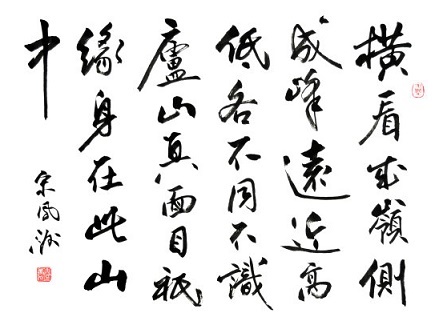 橫看成嶺側
成峰遠近高
低各不同不識
廬山真面目祇
緣身在此山
中
宋鳳洲